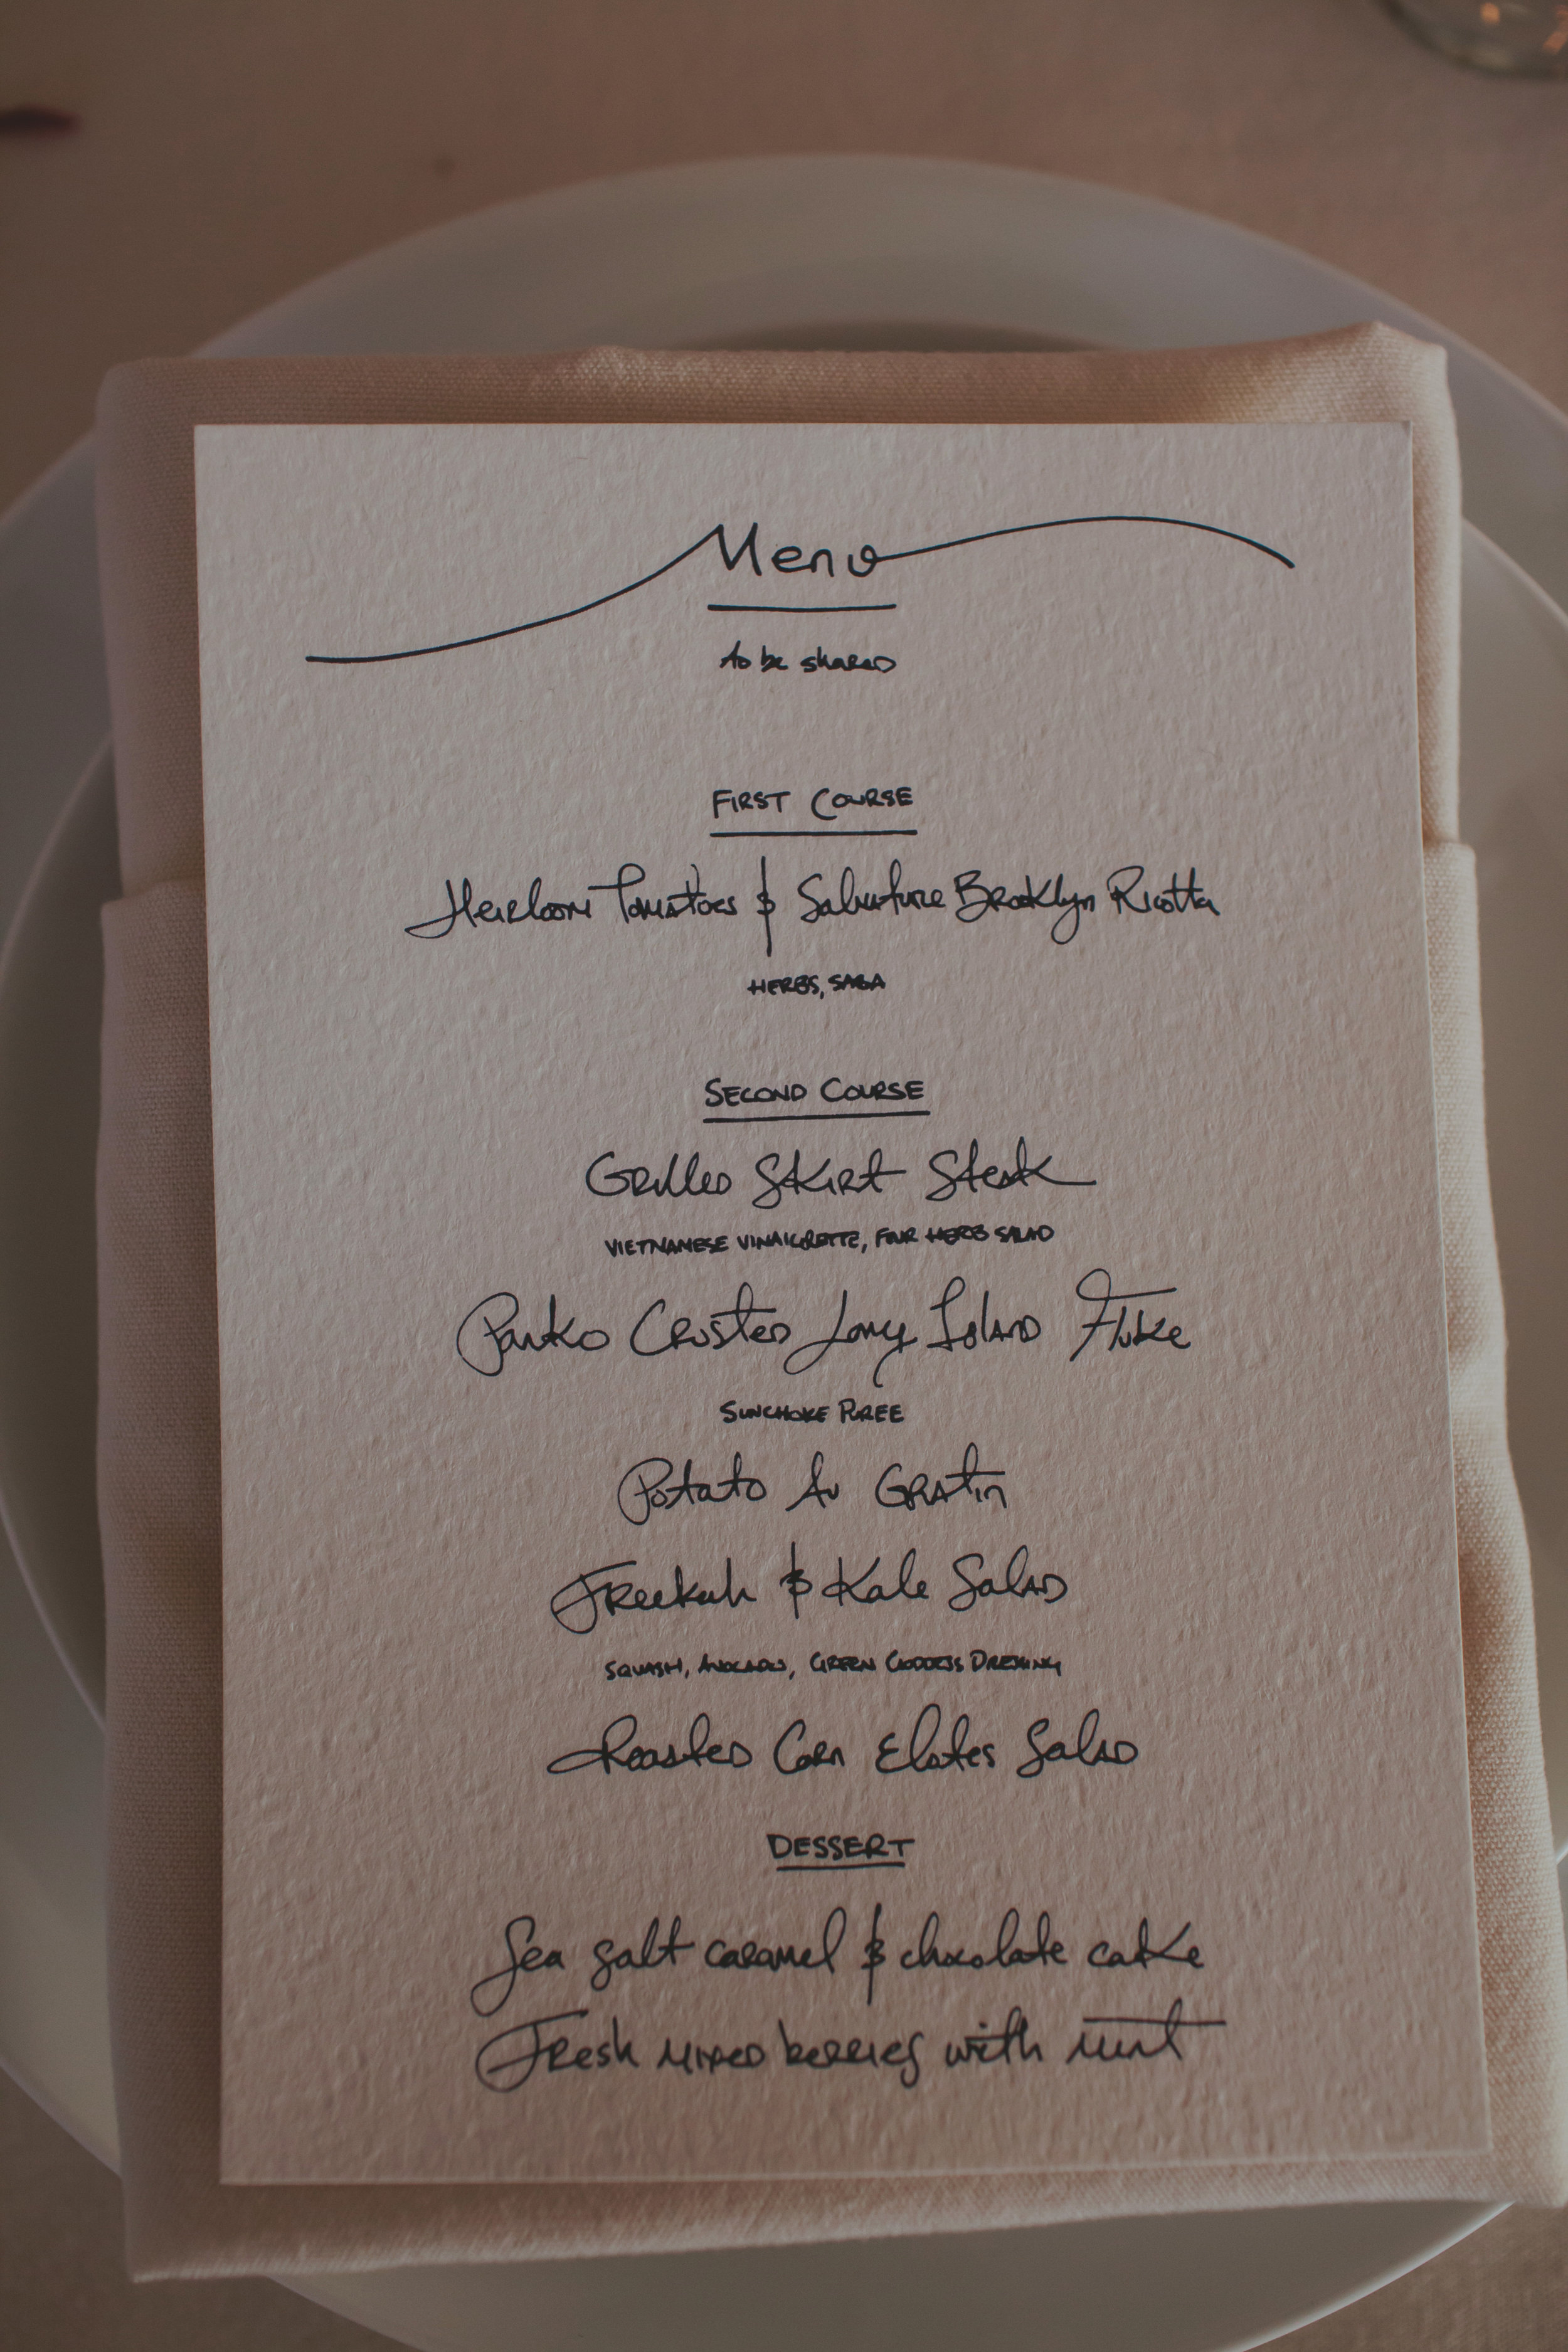 Menu
to be shared
FIRST COURSE
Heirloom Tomatoes & Salvatore Brooklyn Ricotta
HERBS, SABA
SECOND COURSE
Grilled Skirt Steak
VIETNAMESE VINAIGRETTE, FOUR HERB SALAD
Panko Crusted Long Island Fluke
SUNCHOKE PUREE
Potato Au Gratin
Freekah & Kale Salad
SQUASH, AVOCADO, GREEN GODDESS DRESSING
Roasted Corn Elotes Salad
DESSERT
Sea salt caramel & chocolate cake
Fresh mixed berries with mint